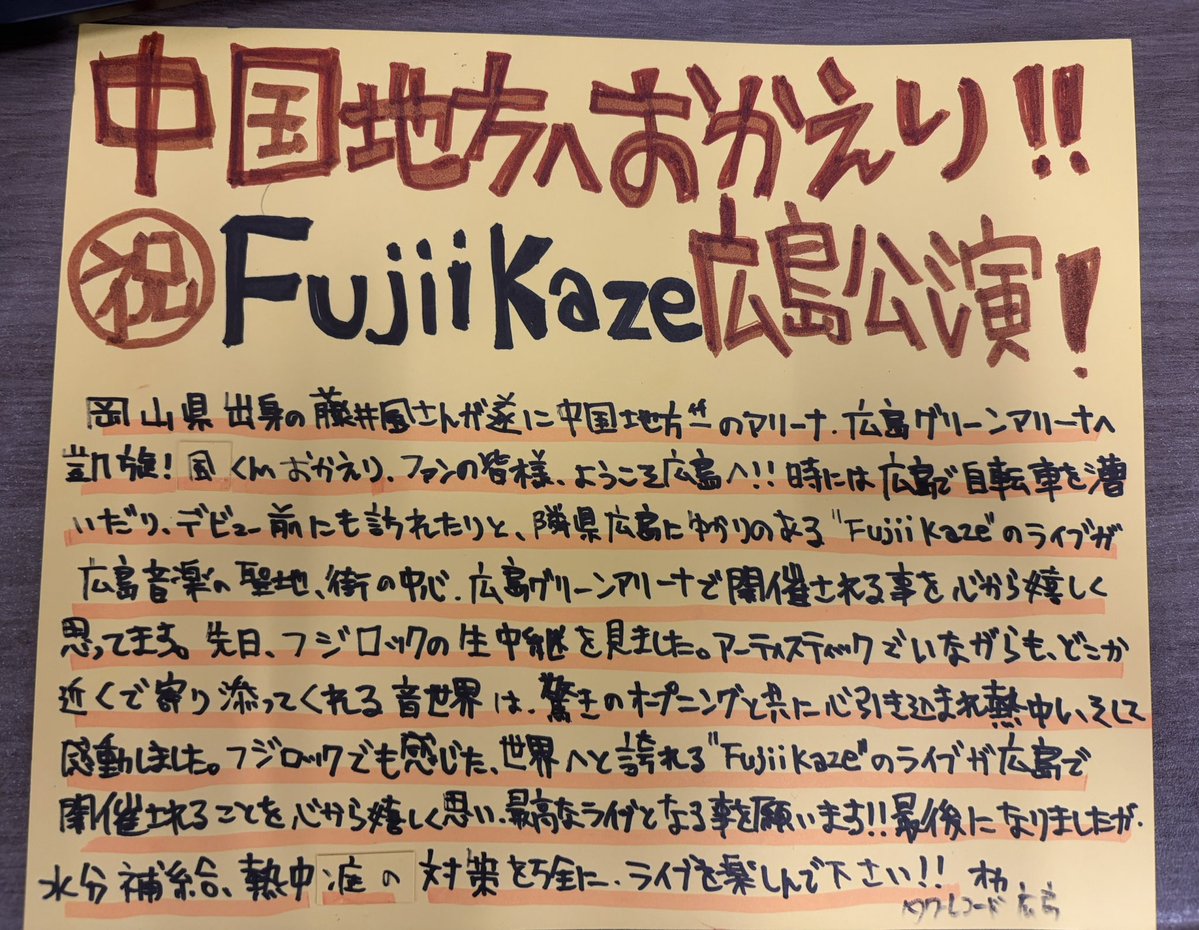 中国地方へおかえり!!
祝 Fujii Kaze 広島公演!
岡山県出身の藤井風さんが遂に中国地方のアリーナ、広島グリーンアリーナへ
凱旋!風くんおかえり、ファンの皆様、ようこそ広島へ!!時には広島で自転車を漕
いだり、デビュー前にも訪れたりと、隣県広島にゆかりのある"Fujii Kaze"のライブが
広島音楽の聖地、街の中心、広島グリーンアリーナで開催される事を心から嬉しく
思ってます。先日、フジロックの生中継を見ました。アーティスティックでいながらも、どこか
近くで寄り添ってくれる音世界は、驚きのオープニングと共に心引き込まれ熱中し、そして
感動しました。フジロックでも感じた、世界へと誇れる"Fujii Kaze"のライブが広島で
開催されることを心から嬉しく思い、最高なライブとなる事を願います!!最後になりましたが、
水分補給、熱中症の対策を万全に、ライブを楽しんで下さい!!
タワーレコード広島